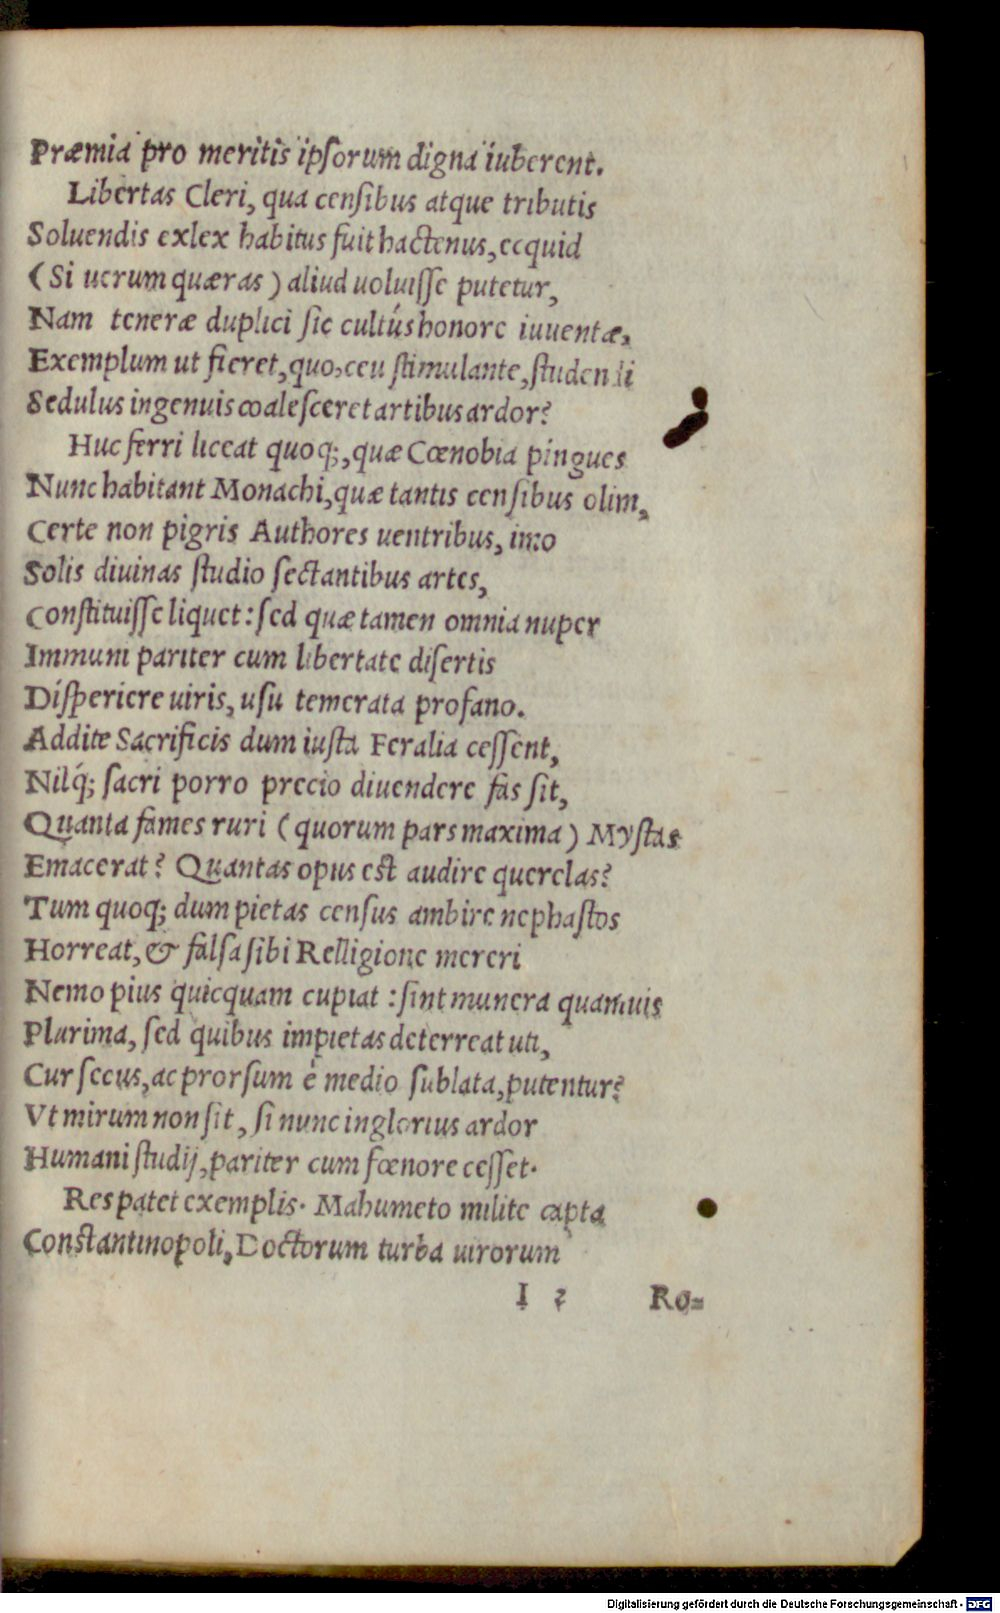 Præmia pro meritis ipsorum digna iuberent.
Libertas Cleri, qua censibus atque tributis
Soluendis exlex habitus fuit hactenus, ecquid
(Si uerum quæras) aliud uoluisse putetur,
Nam teneræ duplici sic cultús honore iuuentæ,
Exemplum ut fieret, quo, ceu stimulante, studendi
Sedulus ingenuis coalesceret artibus ardor?
Huc ferri liceat quoq;, quæ Cœnobia pingues
Nunc habitant Monachi, quæ tantis censibus olim,
Certe non pigris Authores uentribus, imo
Solis diuinas studio sectantibus artes,
Constituisse liquet: sed quæ tamen omnia nuper
Immuni pariter cum libertate disertis
Disperiere uiris, usu temerata profano.
Addite Sacrificis dum iusta Feralia cessent,
Nilq́; sacri porro precio diuendere fas sit,
Quanta fames ruri (quorum pars maxima) Mystas
Emacerat? Quantas opus est audire querelas?
Tum quoq; dum pietas census ambire nephastos
Horreat, & falsa sibi Relligione mereri
Nemo pius quicquam cupiat: sint munera quamuis
Plurima, sed quibus impietas deterreat uti,
Cur secus, ac prorsum è medio sublata, putentur?
Vt mirum non sit, si nunc inglorius ardor
Humani studij, pariter cum fœnore cesset.
Res patet exemplis. Mahumeto milite capta
Constantinopoli, Doctorum turba uirorum
I 2 Ro=
Digitalisierung gefördert durch die Deutsche Forschungsgemeinschaft - DFG